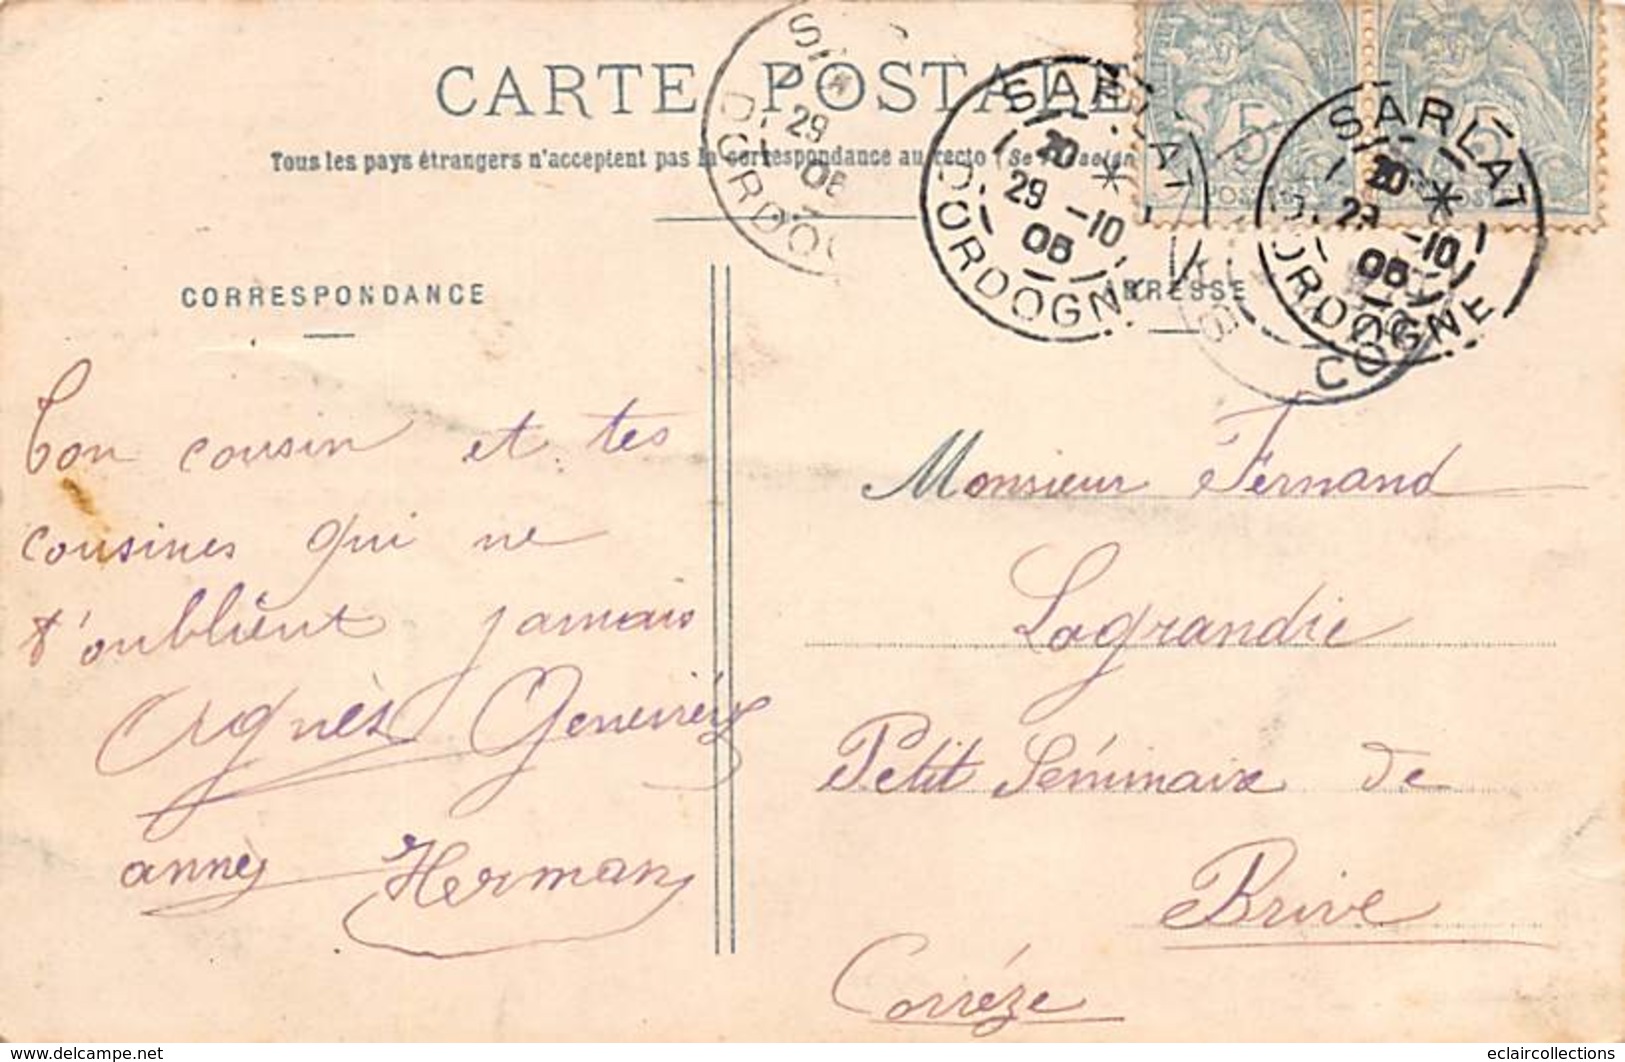 CARTE POSTALE
Tous les pays étrangers n'acceptent pas la correspondance au recto (Se
SARLAT
20 *
29 -10
05
DORDOGNE
SARLAT
20 *
29 -10
05
DORDOGNE
29
05
DORDOG
5
5
COGNE
CORRESPONDANCE
ADRESSE
Ton cousin et tes
cousines qui ne
t'oublient jamais
Agnès Geneviève
Herman
Monsieur Fernand
Lagrandie
Petit Séminaire de
Brive
Corrèze
eclaircollections
www.delcampe.net